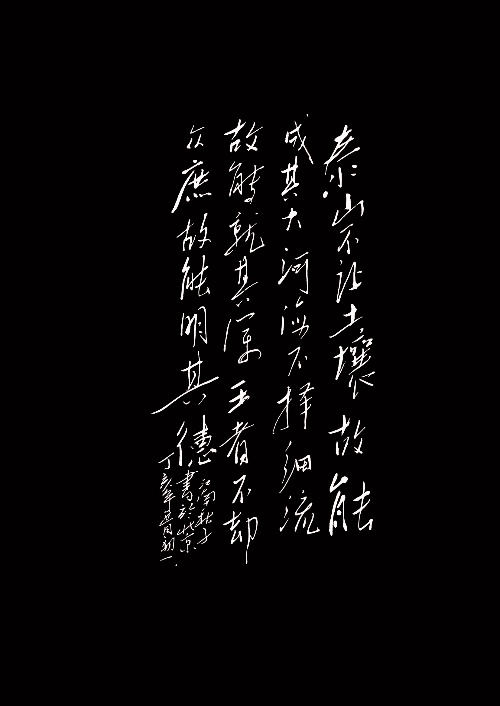 泰山不让土壤故能
成其大河海不择细流
故能就其深王者不却
众庶故能明其德
江南秋子
书於北京
丁亥年